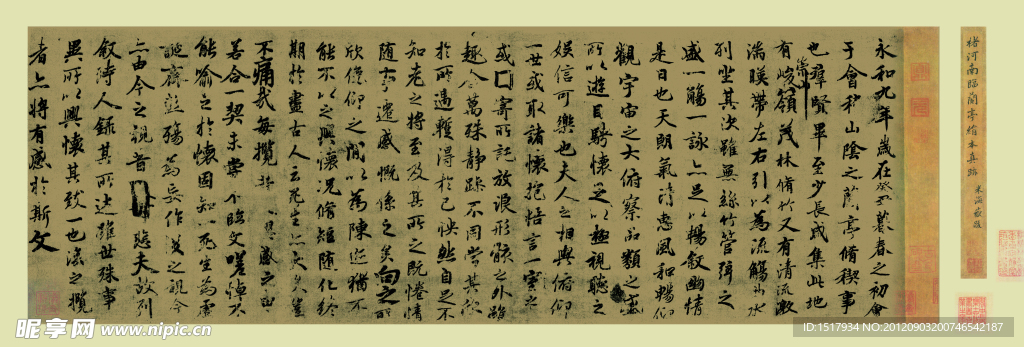 褚河南臨蘭亭絹本真跡
永和九年歲在癸丑暮春之初會
于會稽山陰之蘭亭脩稧事
也群賢畢至少長咸集此地
有崇山峻領茂林脩竹又有清流激
湍暎帶左右引以為流觴曲水
列坐其次雖無絲竹管弦之
盛一觴一詠亦足以暢敘幽情
是日也天朗氣清惠風和暢仰
觀宇宙之大俯察品類之盛
所以遊目騁懷足以極視聽之
娛信可樂也夫人之相與俯仰
一世或取諸懷抱悟言一室之
或因寄所託放浪形骸之外雖
趣舍萬殊靜躁不同當其欣
於所遇蹔得於己怏然自足不
知老之將至及其所之既惓情
隨事遷感慨係之矣向之所
欣俛仰之閒以為陳迹猶不
能不以之興懷況脩短隨化終
期於盡古人云死生亦大矣豈
不痛哉每攬感之由
若合一契未嘗不臨文嗟悼不
能喻之於懷固知一死生為虛
誕齊彭殤為妄作後之視今
亦由今之視昔悲夫故列
敘時人錄其所述雖世殊事
異所以興懷其致一也後之攬
者亦將有感於斯文
昵享网 www.nipic.cn
ID:1517934 NO:20120903200746542187